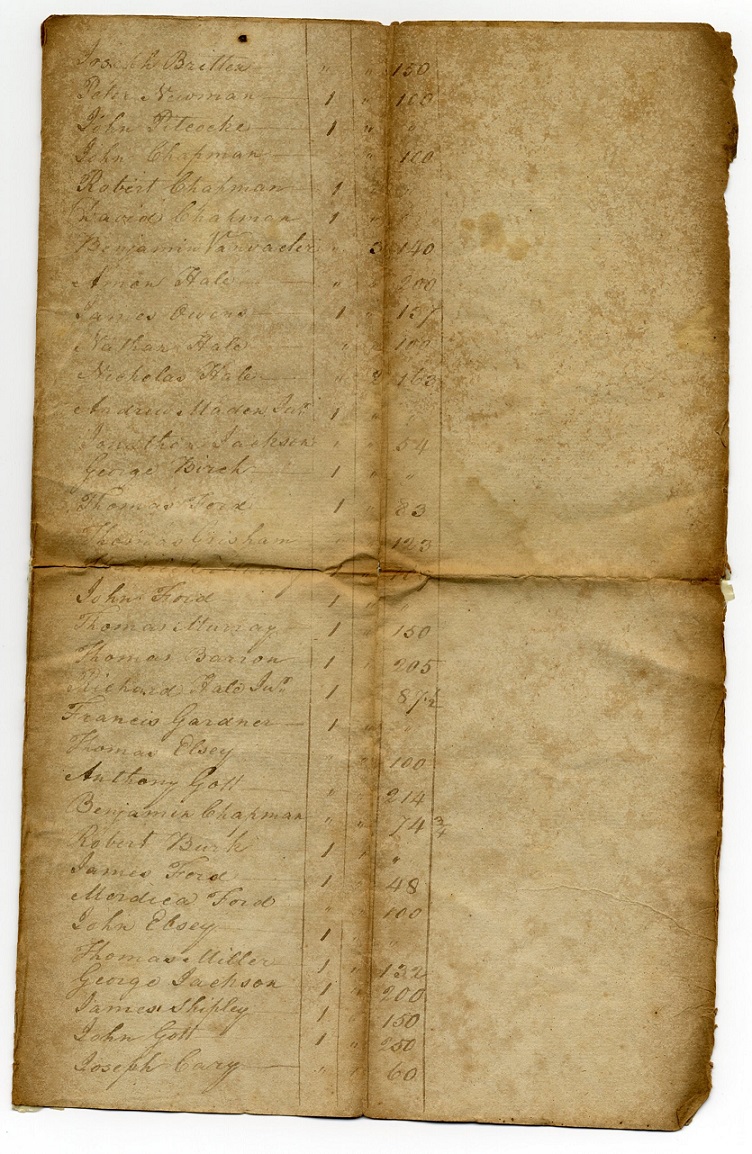 Joseph Britten " " 150
Peter Newman 1 " 100
John Pitcocke 1 " "
John Chapman " 100
Robert Chapman 1 "
David Chapman 1 "
Benjamin Vanvacter " 3 140
Amon Hale " " 200
James Owens 1 " 157
Nathan Hale " 100
Nicholas Hale " 2 160
Andrew Maden Junr 1 " "
Jonathan Jackson " " 54
George Birch 1 " "
Thomas Ford 1 " 83
Thomas Grisham " 123
John Ford 1 " "
Thomas Murray 1 " 150
Thomas Barron 1 " 205
Richard Hale Junr 1 " 87½
Francis Gardner 1 " "
Thomas Elsey " " 100
Anthony Gott " " 214
Benjamin Chapman " " 74¾
Robert Burk 1 " "
James Ford 1 " 48
Mordica Ford " " 100
John Elsey 1 " "
Thomas Miller 1 " 132
George Jackson 1 " 200
James Shipley 1 " 150
John Gott 1 " 250
Joseph Cary " " 60